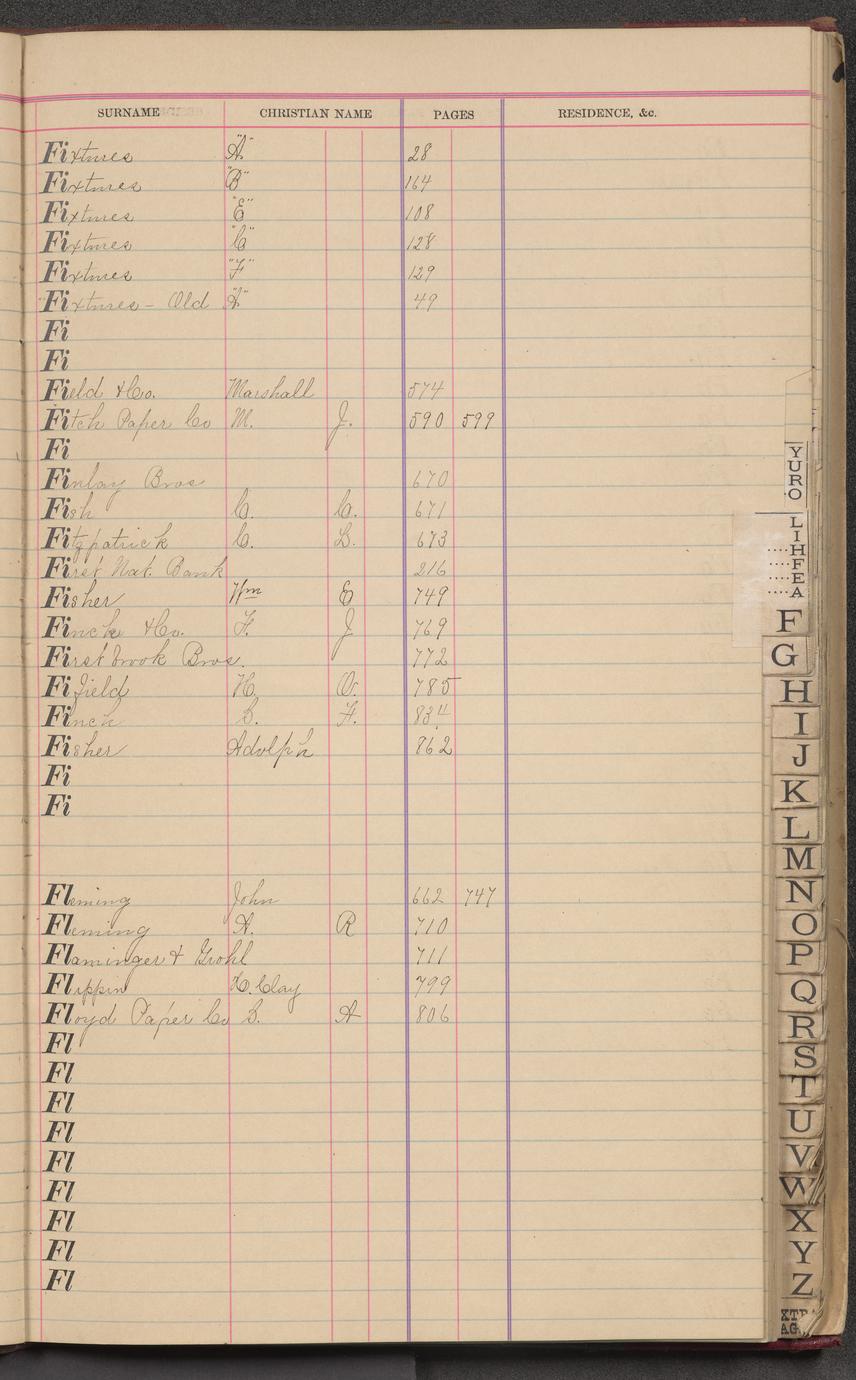 SURNAME CHRISTIAN NAME PAGES RESIDENCE, &c.
Fixtures "A" 28
Fixtures "B" 164
Fixtures "E" 108
Fixtures "C" 128
Fixtures "F" 129
Fixtures - Old "A" 49
Fi
Fi
Field & Co. Marshall 574
Fitch Paper Co M. J. 590 599
Fi
Finlay Bros 670
Fish C. C. 671
Fitzpatrick C. D. 673
First Nat. Bank 216
Fisher Wm E 749
Finck & Co. F. J 769
Firstbrook Bros. 772
Fifield H. O. 785
Finch S. F. 834
Fisher Adolph 862
Fi
Fi
Fleming John 662 747
Fleming A. R 710
Flaminger & Grohl 711
Flippin H. Clay 799
Floyd Paper Co S. A 806
Fl
Fl
Fl
Fl
Fl
Fl
Fl
Fl
Fl
Y
U
R
O
L
I
H
F
E
A
F
G
H
I
J
K
L
M
N
O
P
Q
R
S
T
U
V
W
X
Y
Z